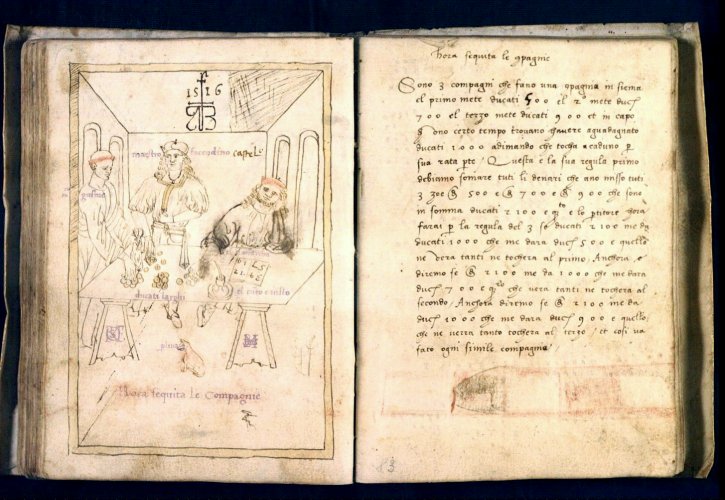 1516
maestro
faccendino
castelo
ducati larghi
Hora sequita le Compagnie
Hora sequita le 9pagnie
Sono 3 compagni che fano una 9pagnia insiema
el primo mete ducati 500 el 2 mete duc
700 el terzo mete ducati 900 et in capo
certo tempo trovano havere aguadagnato
ducati 1000 adimando che tocha acaduno p
sua rata pte. Questa e la sua regula primo
debiamo somare tuti li denari che ano misso tuti
3 zoe 500 e 700 e 900 che sono
in somma ducati 2100 e lo ptitore hora
farai p la regula del 3 se ducati 2100 me da
ducati 1000 che me dara duc 500 e quello
ne vera tanti ne tochera al primo. Anchora
diremo se 2100 me da 1000 che me dara
duc 700 e che vera tanti ne tochera al
secondo. Anchora diremo se 2100 me da
duc 1000 che me dara duc 900 e quello
che ne verra tanto tochera al terzo. et cosi va
fato ogni simile compagnia